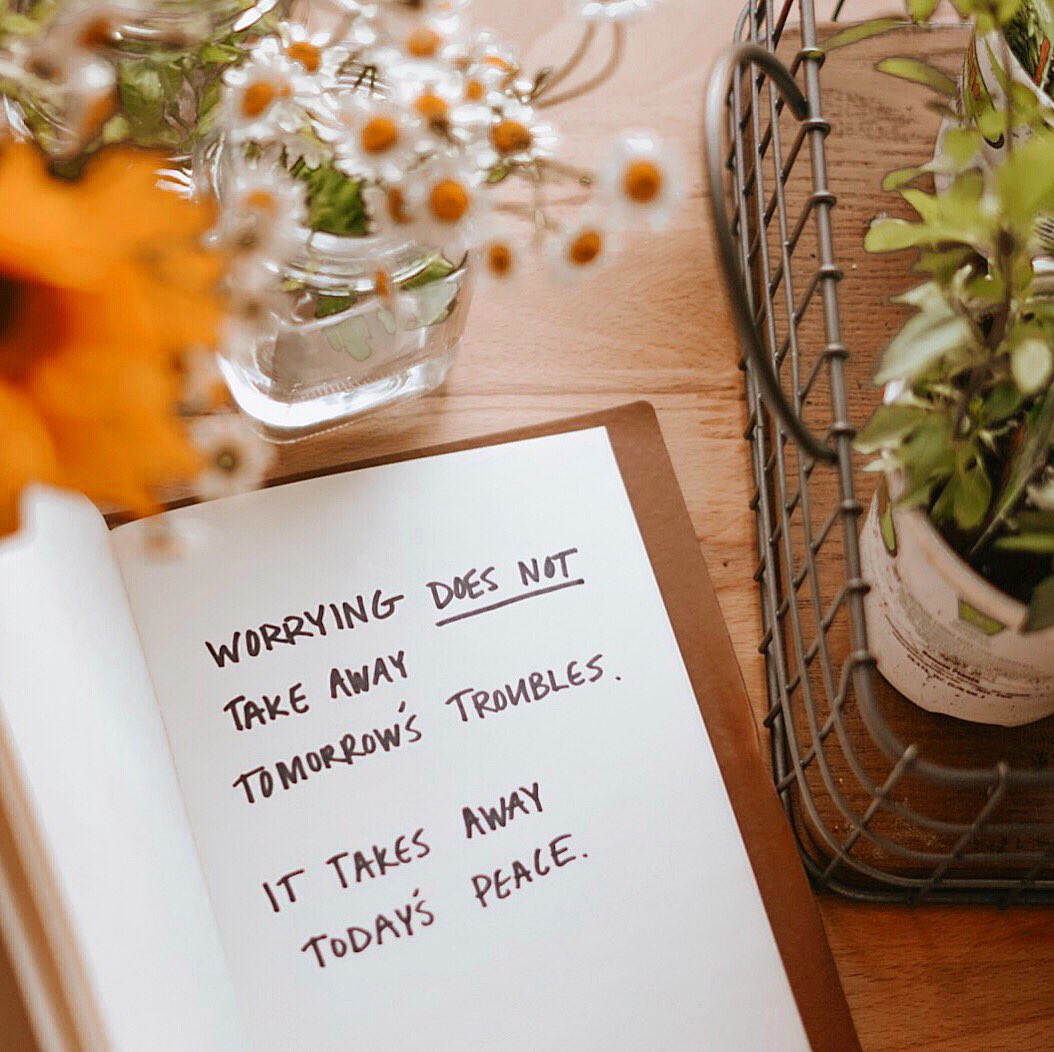 WORRYING DOES NOT
TAKE AWAY
TOMORROW'S TROUBLES.
IT TAKES AWAY
TODAY'S PEACE.